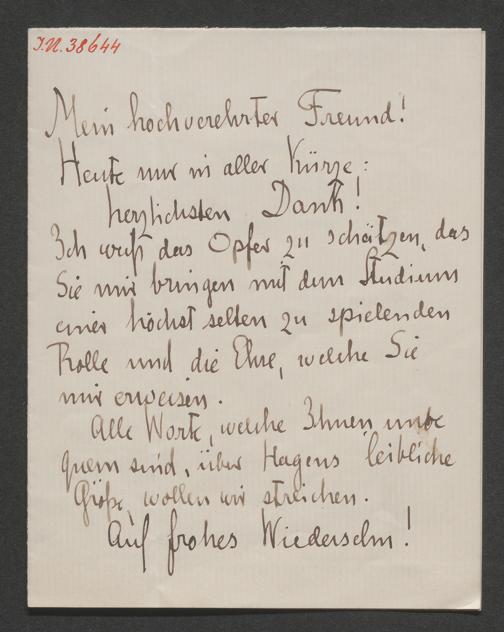 J.N. 38644
Mein hochverehrter Freund!
Heute nur in aller Kürze:
herzlichsten Dank!
Ich weiß das Opfer zu schätzen, das
Sie mir bringen mit dem Studium
einer höchst selten zu spielenden
Rolle und die Ehre, welche Sie
mir erweisen.
Alle Worte, welche Ihnen unbe
quem sind, über Hagens leibliche
Größe, wollen wir streichen.
Auf frohes Wiedersehn!